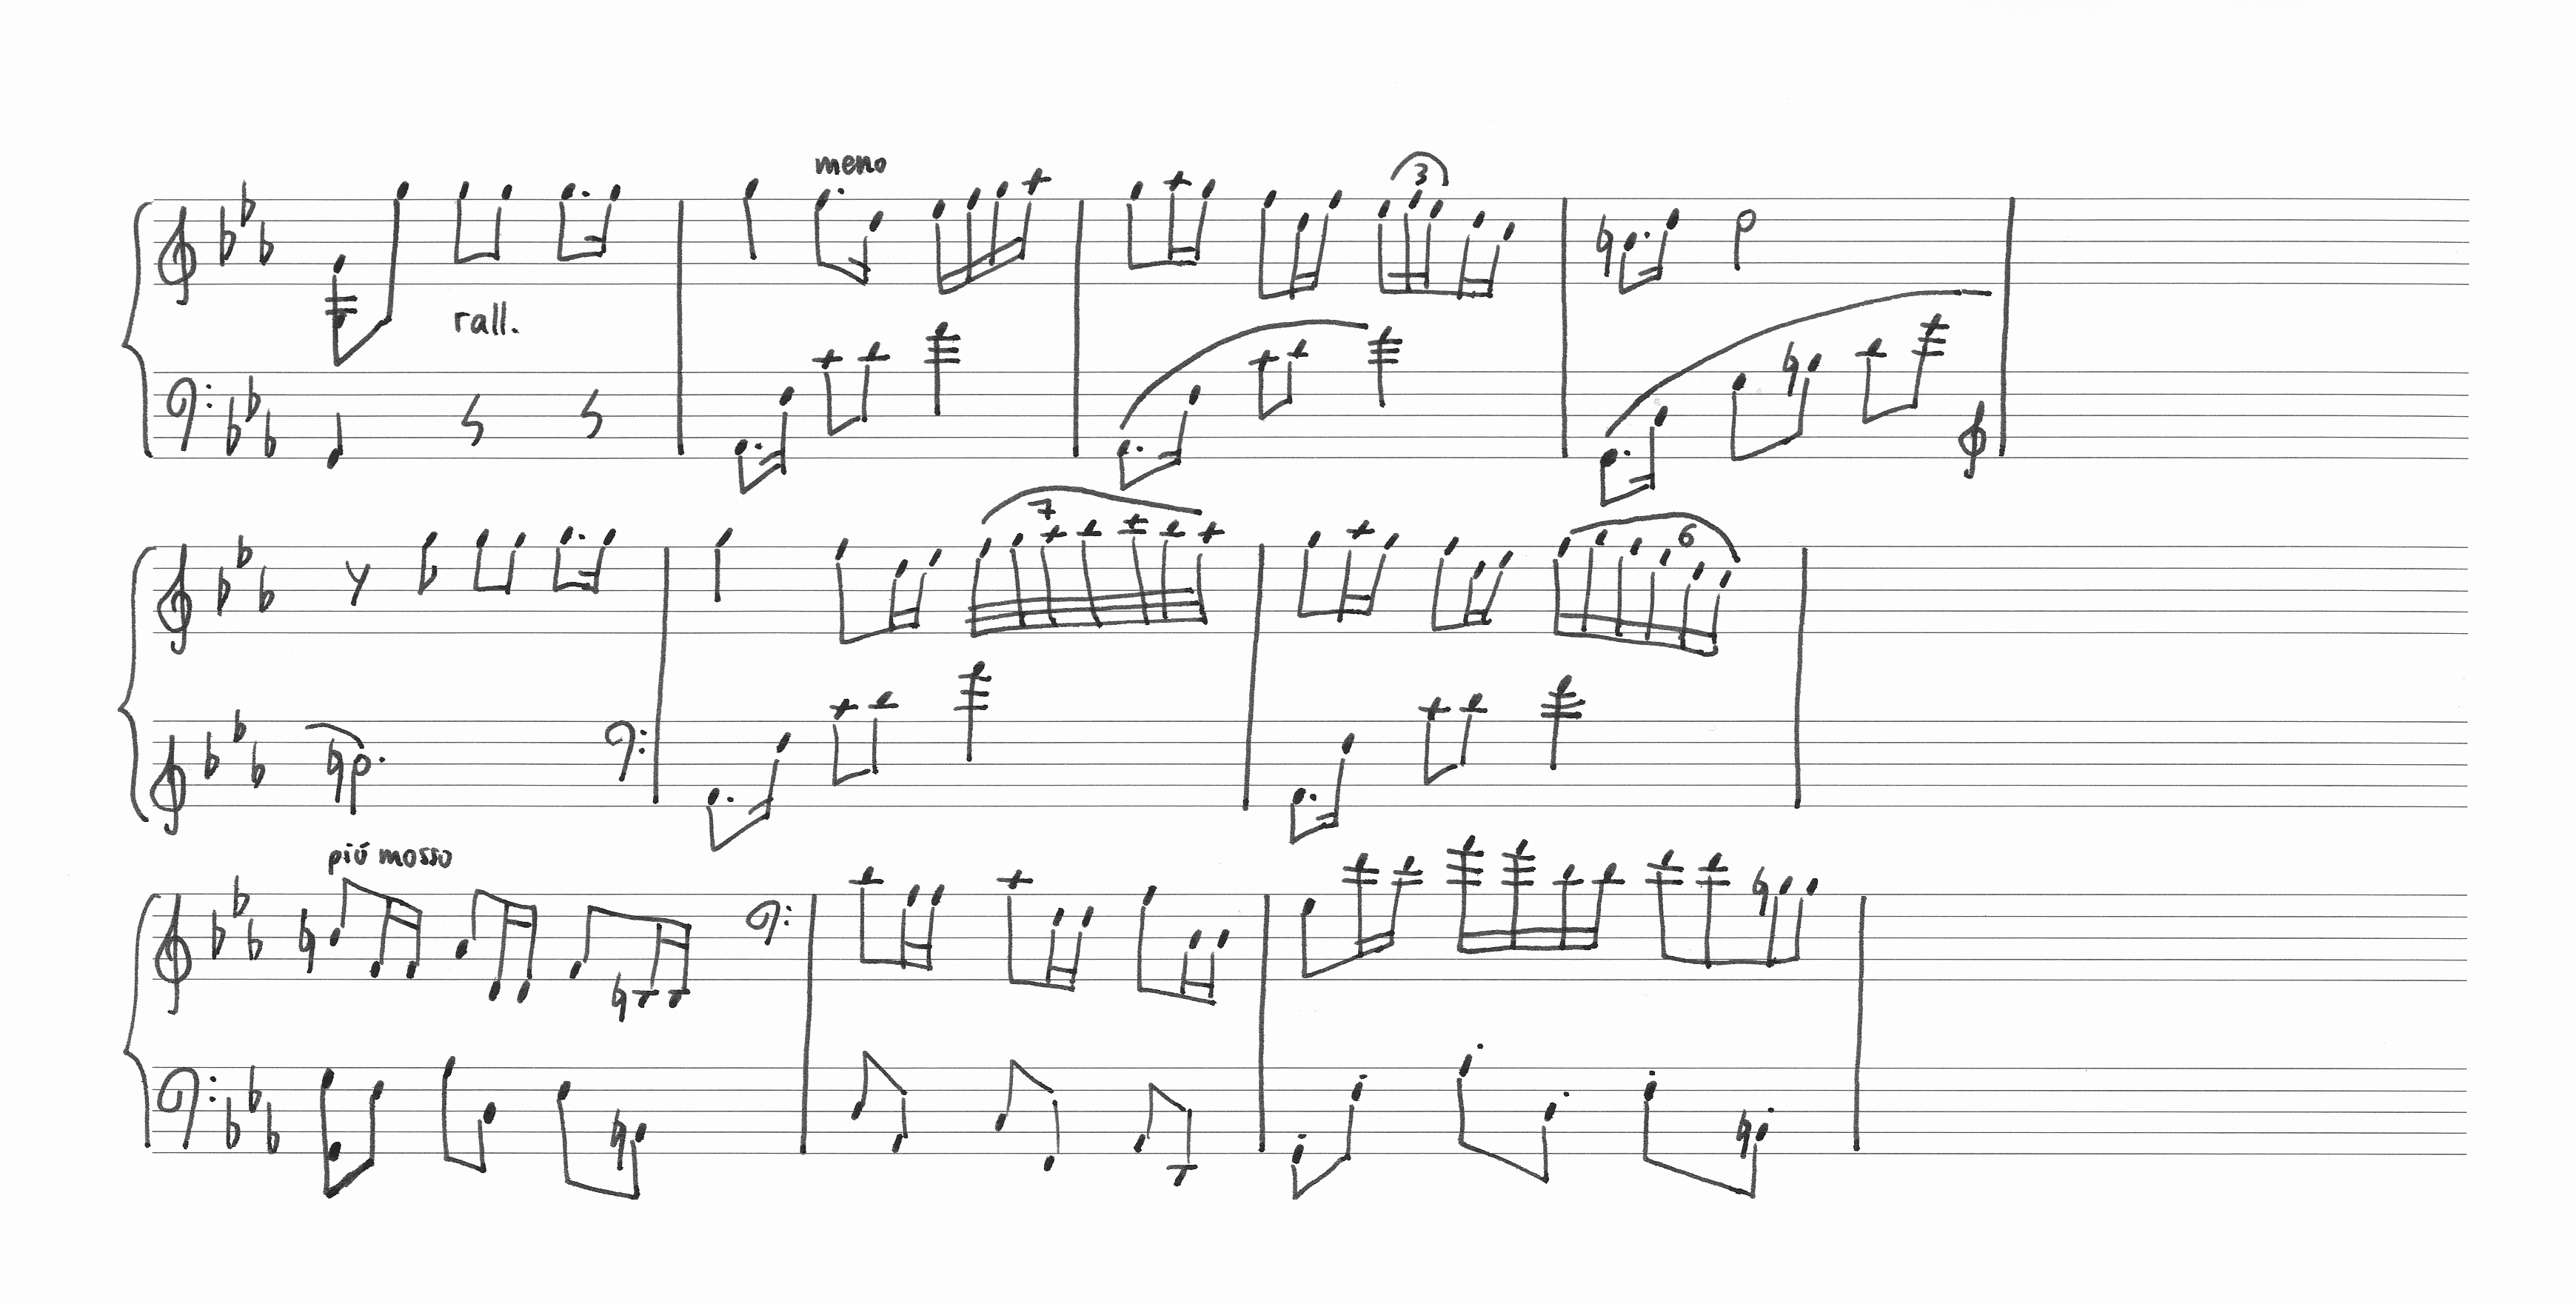 meno
3
rall.
7
6
piú mosso